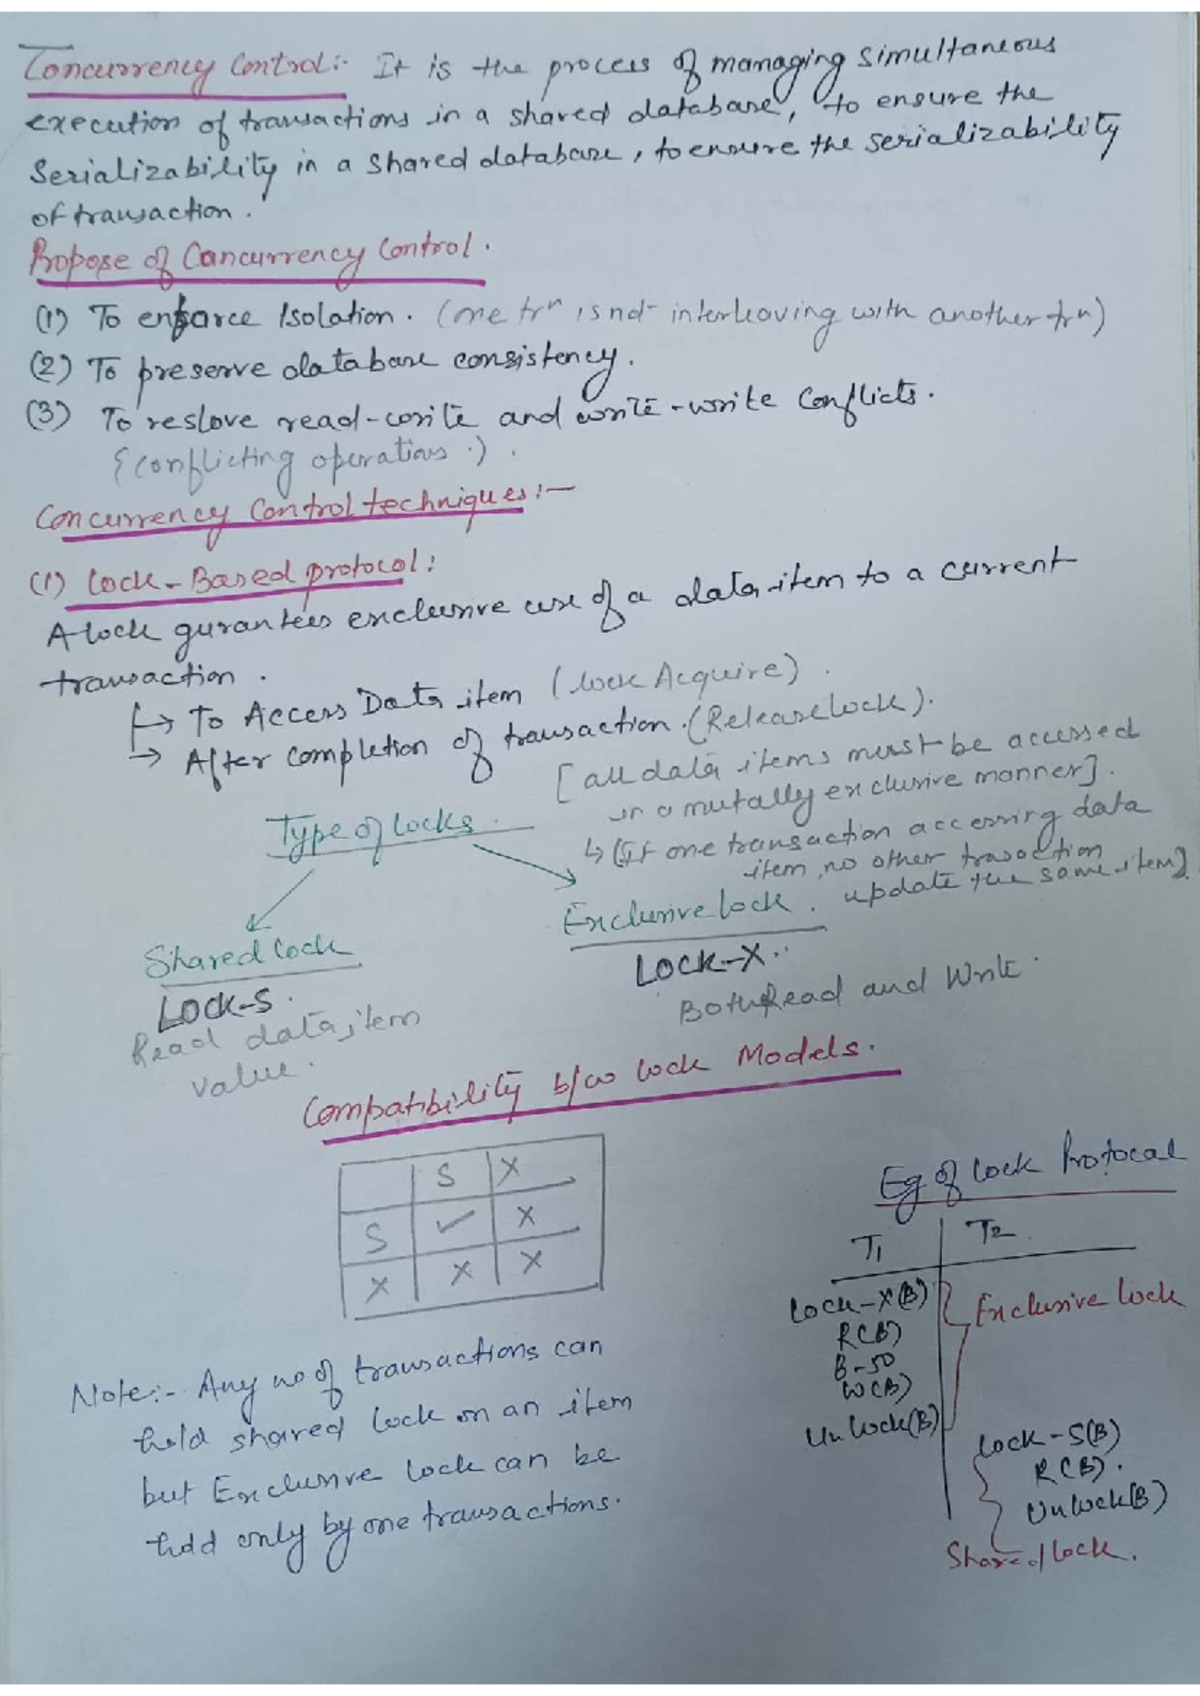 Concurrency Control:- It is the process of managing simultaneous
execution of transactions in a shared database, to ensure the
Serializability in a shared database, to ensure the serializability
of transaction.
Propose of Cancurrency Control.
(1) To enforce Isolation. (one trn is not interleaving with another trn)
(2) To preserve database consistency.
(3) To reslove read-write and write-write Conflicts.
{conflicting operations.)
Concurrency Control techniques:-
(1) Lock-Based protocol:
A lock gurantees exclusive use of a data item to a current
transaction.
↳ To Access Data item (lock Acquire).
→ After completion of transaction. (Release lock).
[all data items must be accessed
in a mutally exclusive manner].
↳ (If one transaction accessing data
item, no other trasaction
update the same item]
Type of locks.
Shared lock
LOCK-S.
Read data item
value.
Exclusive lock.
LOCK-X..
Both Read and Write.
Compatibility b/w lock Models.
S X
S ✓ X
X X X
Note:- Any no of transactions can
hold shared lock on an item
but Exclusive lock can be
hold only by one transactions.
Eg of lock Protocal
T1 T2
Lock-X(B)
R(B)
B-50
W(B)
Unlock(B)
Exclusive lock
Lock-S(B)
R(B).
Unlock(B)
Shared lock.